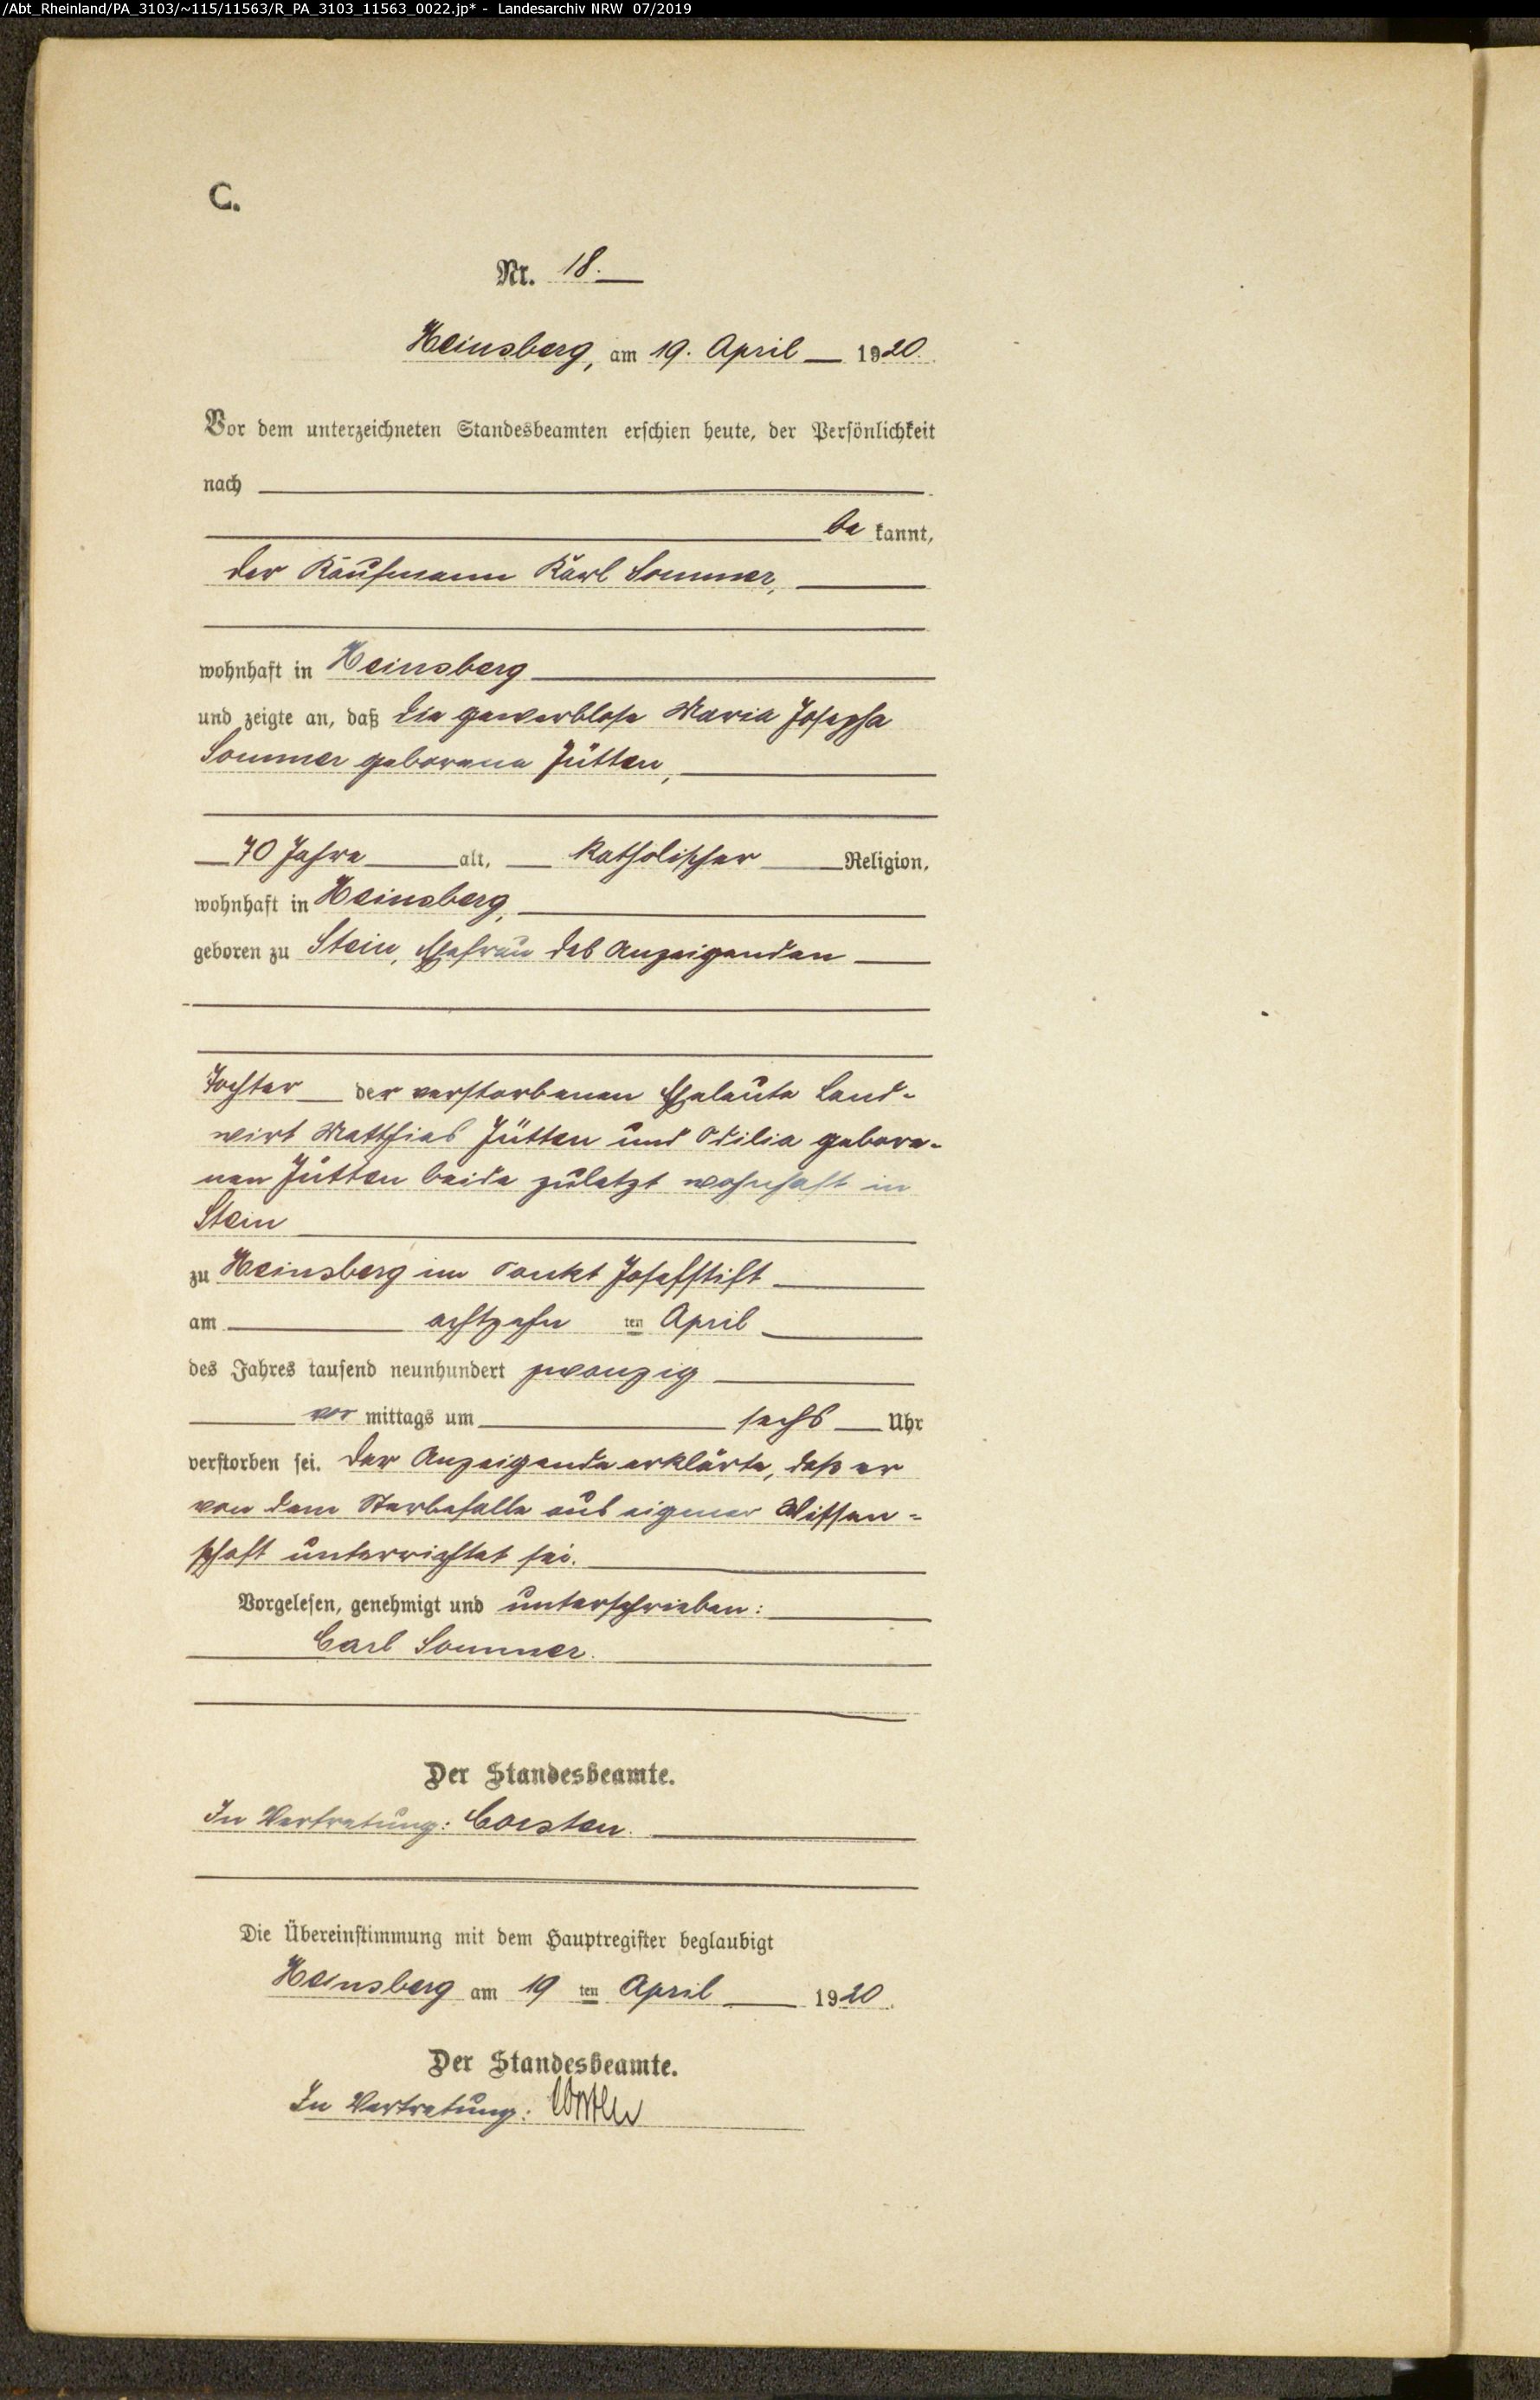 /Abt_Rheinland/PA_3103/~115/11563/R_PA_3103_11563_0022.jp* - Landesarchiv NRW 07/2019
C.
Nr. 18.
Heinsberg, am 19. April 1920.
Vor dem unterzeichneten Standesbeamten erschien heute, der Persönlichkeit
nach
be kannt,
der Kaufmann Karl Sommer,
wohnhaft in Heinsberg
und zeigte an, daß die gewerblose Maria Josepha
Sommer geborene Jütten,
70 Jahre alt, katholischer Religion,
wohnhaft in Heinsberg,
geboren zu Stein, Ehefrau des Anzeigenden
Tochter der verstorbenen Eheleute Land-
wirt Matthias Jütten und Odilia gebore-
nen Jütten beide zuletzt wohnhaft in
Stein
zu Heinsberg im Sankt Josefstift
am achtzehn ten April
des Jahres tausend neunhundert zwanzig
vor mittags um sechs Uhr
verstorben sei. Der Anzeigende erklärte, daß er
von dem Sterbefalle aus eigener Wissen-
schaft unterrichtet sei.
Vorgelesen, genehmigt und unterschrieben:
Carl Sommer.
Der Standesbeamte.
In Vertretung: Corsten.
Die Übereinstimmung mit dem Hauptregister beglaubigt
Heinsberg am 19 ten April 1920.
Der Standesbeamte.
In Vertretung: Corsten